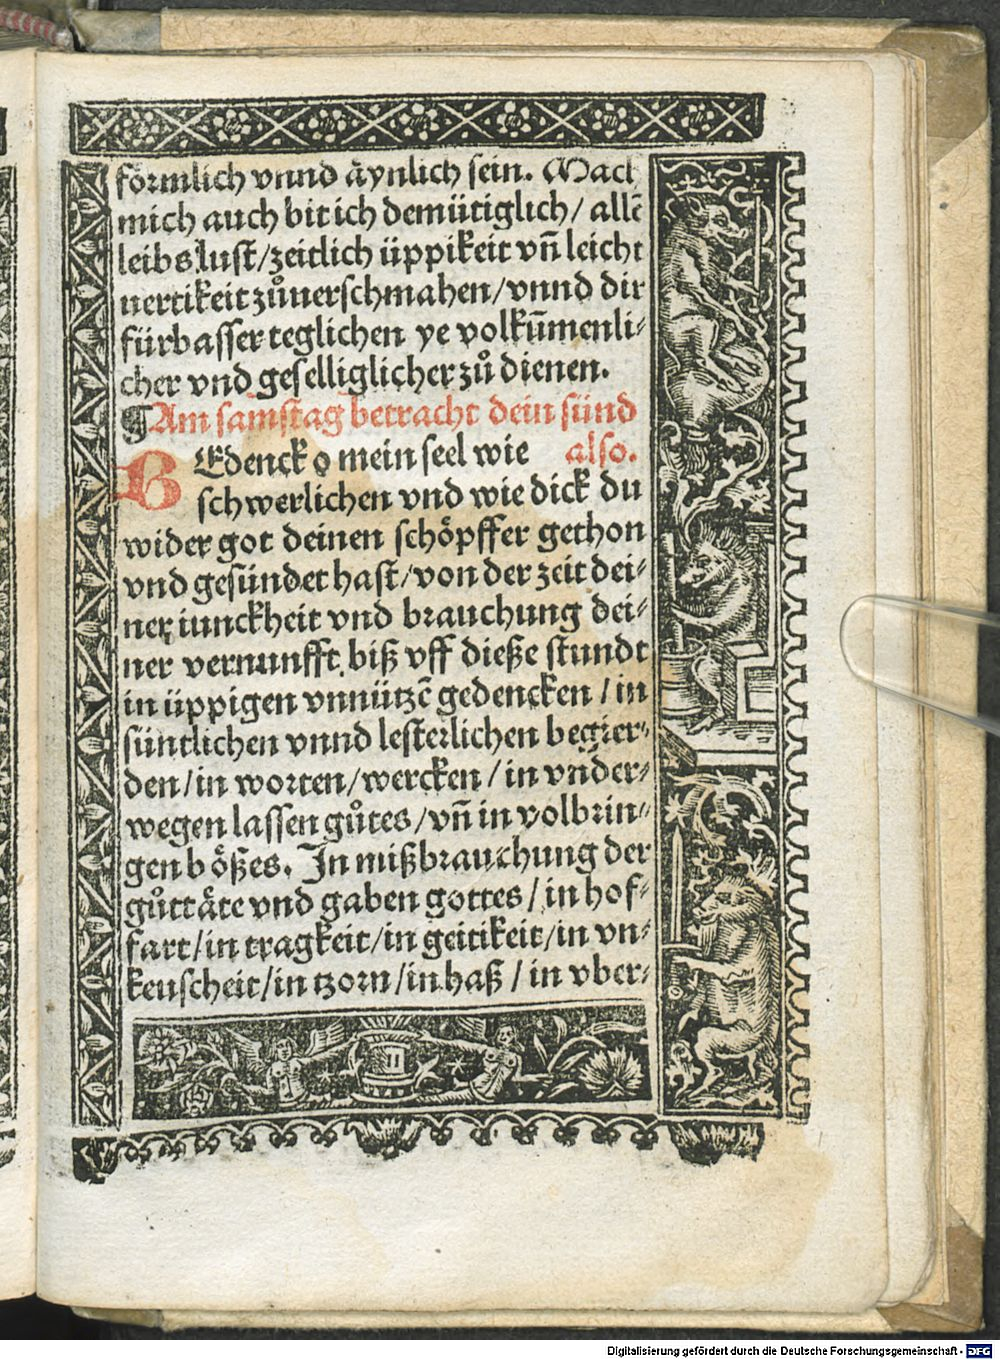 förmlich vnnd äynlich sein. Mach
mich auch bit ich demütiglich/ allē
leibs lust/zeitlich üppikeit vñ leicht
uertikeit zůuerschmahen/vnnd dir
fürbasser teglichen ye volkūmenli⸗
cher vnd geselliglicher zů dienen.
¶Am samstag betracht dein sünd
GEdenck o mein seel wie also.
schwerlichen vnd wie dick du
wider got deinen schöpffer gethon
vnd gesündet hast/von der zeit dei⸗
ner iunckheit vnd brauchung dei⸗
ner vernunfft biß vff dieße stundt
in üppigen vnnützē gedencken/in
süntlichen vnnd lesterlichen begier⸗
den/in worten/wercken/in vnder⸗
wegen lassen gůtes/vñ in volbrin⸗
gen bößes. In mißbrauchung der
gůttäte vnd gaben gottes/in hof⸗
fart/in tragkeit/in geitikeit/in vn⸗
keuscheit/in tzorn/in haß/in vber⸗
Digitalisierung gefördert durch die Deutsche Forschungsgemeinschaft - DFG